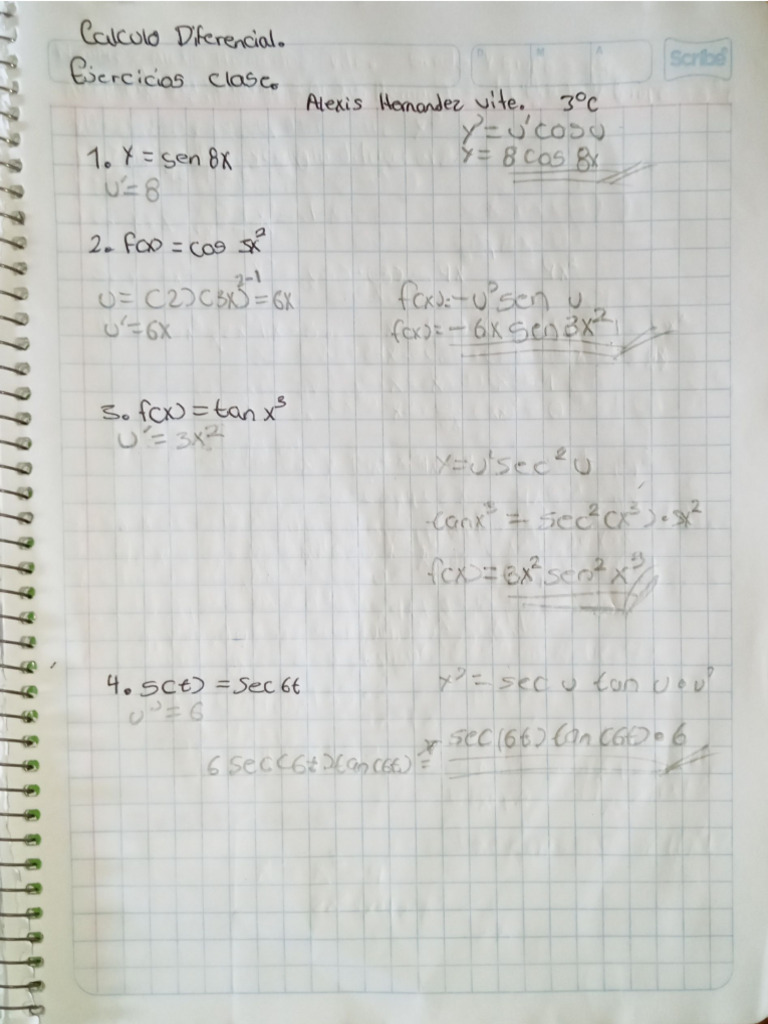 Calculo Diferencial.
Scribe
D M A
Ejercicios clase.
Alexis Hernandez vite. 3°C
y'= u' cos u
1. Y = sen 8x
y= 8 cos 8x
u'= 8
2. f(x) = cos 3x²
u= (2)(3x)²⁻¹=6x
f(x)=-u' sen u
u'=6x
f(x)= -6x sen 3x²
3. f(x) = tan x³
u'= 3x²
y=u' sec² u
tanx³ = sec²(x³)·3x²
f(x)=3x² sen² x³
4. s(t) = sec 6t
y'= sec u tan u·u'
u'=6
sec(6t) tan(6t)·6
6 sec(6t)tan(6t)=